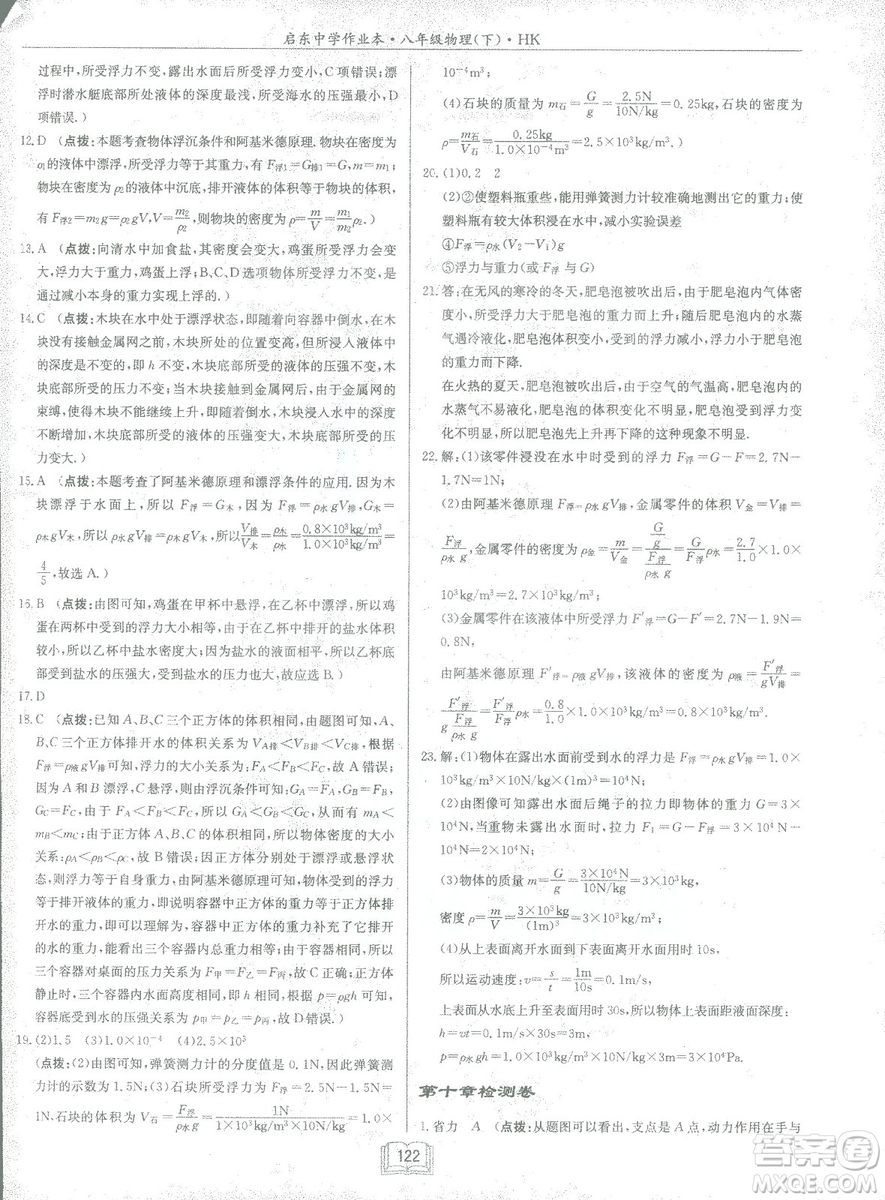 启东中学作业本·八年级物理(下)·HK
过程中,所受浮力不变,露出水面后所受浮力变小,C项错误;漂
浮时潜水艇底部所处液体的深度最浅,所受海水的压强最小,D
项错误.)
12.D (点拨:本题考查物体浮沉条件和阿基米德原理.物块在密度为
ρ₁的液体中漂浮,所受浮力等于其重力,有F浮1=G,m=m₁;物块
在密度为ρ₂的液体中沉底,排开液体的体积等于物块的体积,
有F浮2=m₂g,V=m₂/ρ₂,则物块的密度为ρ=m/V=m₁/m₂·ρ₂.)
13.A (点拨:向清水中加食盐,其密度会变大,鸡蛋所受浮力会变
大,浮力大于重力,鸡蛋上浮;B、C、D选项物体所受浮力不变,是
通过减小本身的重力实现上浮的.)
14.C (点拨:木块在水中处于漂浮状态,即随着向容器中倒水,在
木块没有接触金属网之前,木块所处的位置变高,但浸入液体中
的深度是不变的,即h不变,木块底部所受的液体的压强不变,
底部所受的压力不变;当木块接触到金属网后,由于金属网的
束缚,使得木块不能继续上升,则随着倒水,木块浸入水中的深度
不断增加,木块底部所受的液体的压强不断增大,木块底部所受的
压力变大.)
15.A (点拨:本题考查了阿基米德原理和漂浮条件的应用.因为木
块漂浮于水面上,所以F浮=G木,因为F浮=ρ水gV排,G木=
ρ木gV木,所以ρ木gV木=ρ水gV排,所以V排/V木=ρ木/ρ水=0.8×10³kg/m³/1.0×10³kg/m³=
4/5,故选A.)
16.B (点拨:由图可知,鸡蛋在甲杯中悬浮,在乙杯中漂浮,所以鸡
蛋在两杯中所受到的浮力大小相等;鸡蛋在乙杯中排开的盐水体积
较小,所以乙杯中盐水的密度大;因为盐水的液面相平,所以乙杯底
部受到盐水的压强大,压力也大,故应选B.)
17.D
18.C (点拨:已知A、B、C三个正方体的体积相同,由题图可知,A、
B、C三个正方体排开水的体积关系为VA排<VB排<VC排,根据
F浮=ρ液gV排可知,浮力的大小关系为FA<FB<FC,故A错误.
因为A和B漂浮,C悬浮,则由浮沉条件可知:GA=FA,GB=FB,
GC=FC,由于FA<FB<FC,所以GA<GB<GC,所以有mA<
mB<mC;由于正方体A、B、C的体积相同,所以物体密度的大小
关系:ρA<ρB<ρC,故B错误.因为正方体分别处于漂浮或悬浮
状态,则浮力等于自身重力,由阿基米德原理可知,浮力等于排
开水的重力,即说明容器中正方体的重力等于正方体排开的水
的重力,即可以理解为,容器中正方体的重力补充了它排开的
水的重力,能看出三个容器内总重力相等;由于容器相同,所以
三个容器对桌面的压力关系为F甲=F乙=F丙,故C正确;正方体
静止时,三个容器内水面高度相同,即h相同,根据p=ρgh可知,
容器底部受到水的压强关系为p甲=p乙=p丙,故D错误.)
19.(2)1.5 (3)1.0×10⁻⁴ (4)2.5×10³
(点拨:(2)由图可知,弹簧测力计的分度值是0.1N,则弹簧测力
计的示数为1.5N;(3)石块所受浮力大小为F浮=2.5N-1.5N=
1N,石块的体积为V石=F浮/ρ水g=1N/1×10³kg/m³×10N/kg=1.0×
10⁻⁴m³;
(4)石块的质量为m石=G/g=2.5N/10N/kg=0.25kg,石块的密度为
ρ石=m石/V石=0.25kg/1.0×10⁻⁴m³=2.5×10³kg/m³.)
20.(1)0.2 2
(2)②使塑料瓶重些,能用弹簧测力计较准确地测出它的重力;使
塑料瓶有较大体积浸在水中,减小实验误差
④F浮=ρ水(V₂-V₁)g
⑤浮力与重力(或F浮与G)
21.答:在无风的寒冷的冬天,肥皂泡被吹出后,由于肥皂泡内气体温
度高,体积小,肥皂泡所受的浮力大于肥皂泡的重力而上升;肥皂泡内的水蒸
气遇冷液化,肥皂泡的体积变小,浮力变小,浮力小于肥皂泡的
重力而下降.
在火热的夏天,肥皂泡被吹出后,由于空气的气温高,肥皂泡内的
水蒸气不易液化,肥皂泡的体积变化不明显,肥皂泡受到的浮力变化
不明显,所以夏天肥皂泡的这种现象不明显.
22.解:(1)该零件浸没在水中时受到的浮力F浮=G-F=2.7N-
1.7N=1N;
(2)由阿基米德原理F浮=ρ水gV排,金属零件的体积V金=V排=
F浮/ρ水g,金属零件的密度为ρ金=m/V金=(G/g)/(F浮/ρ水g)=G/F浮·ρ水=2.7/1×1.0×
10³kg/m³=2.7×10³kg/m³;
(3)金属零件在该液体中所受浮力F′浮=G-F′=2.7N-1.9N=
0.8N,
由阿基米德原理F′浮=ρ液gV排,该液体的密度为ρ液=F′浮/gV排=
F′浮/(g·F浮/ρ水g)=F′浮/F浮·ρ水=0.8/1×1.0×10³kg/m³=0.8×10³kg/m³.
23.解:(1)物体在露出水面前受到水的浮力是F浮=ρ水gV排=1.0×
10³kg/m³×10N/kg×(1m)³=10⁴N;
(2)由图像可知露出水面后绳子的拉力即物体的重力G=3×
10⁴N,物体未露出水面前绳子的拉力F₁=G-F浮=3×10⁴N-
10⁴N=2×10⁴N;
(3)物体的质量为m=G/g=3×10⁴N/10N/kg=3×10³kg,
密度ρ=m/V=3×10³kg/(1m)³=3×10³kg/m³;
(4)从上表面离开水面到下表面离开水面用时10s,
所以运动速度v=s/t=1m/10s=0.1m/s,
上表面从水底上升至水面用时30s,所以物体上表面距液面深度
h=vt=0.1m/s×30s=3m,
p=ρ水gh=1.0×10³kg/m³×10N/kg×3m=3×10⁴Pa.
第十章检测卷
1.省力 A (点拨:从题图可以看出,支点是A点,动力作用在手与
122